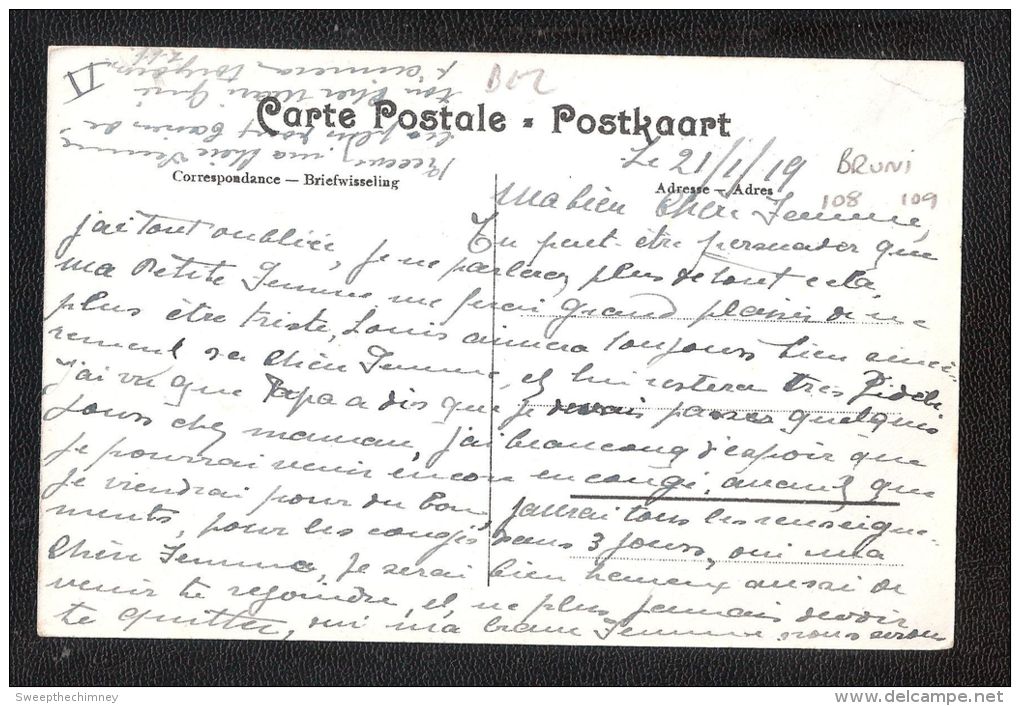 B12
Carte Postale - Postkaart
Correspondance — Briefwisseling
Adresse — Adres
BRUNI
108 109
Le 21/1/19
Ma bien Chère Femme,
j'ai tout oubliée, Tu peut-être persuader que
je ne parlerez plus de tout cela,
ma Petite Femme, me ferai grand plaisir de ne
plus être triste, Louis aimera toujours bien
sa Chère Femme, et lui restera très fidèle
j'ai vu que Papa a dis que je devais passer quelques
jours chez maman, j'ai beaucoup d'espoir que
je pourrai venir encore en congé, avant que
je viendrai pour du bon, j'aurai tous les renseigne-
ments, pour les congés dans 3 jours, oui ma
Chère Femme, je serai bien heureux aussi de
venir te rejoindre, et ne plus jamais devoir
te quitter, oui ma Femme, nous serons
Reçois, ma Chère Femme
les plus
ton Cher Mari qui
t'aimera toujours
Sweepthechimney
www.delcampe.net